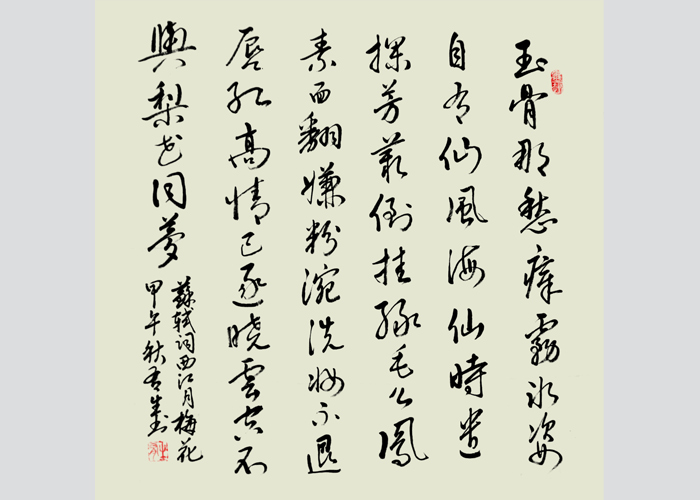 玉骨那愁瘴霧冰姿
自有仙風海仙時遣
探芳叢倒挂綠毛么鳳
素面翻嫌粉涴洗妝不退
唇紅高情已逐曉雲空不
與梨花同夢
蘇軾詞西江月梅花
甲午秋